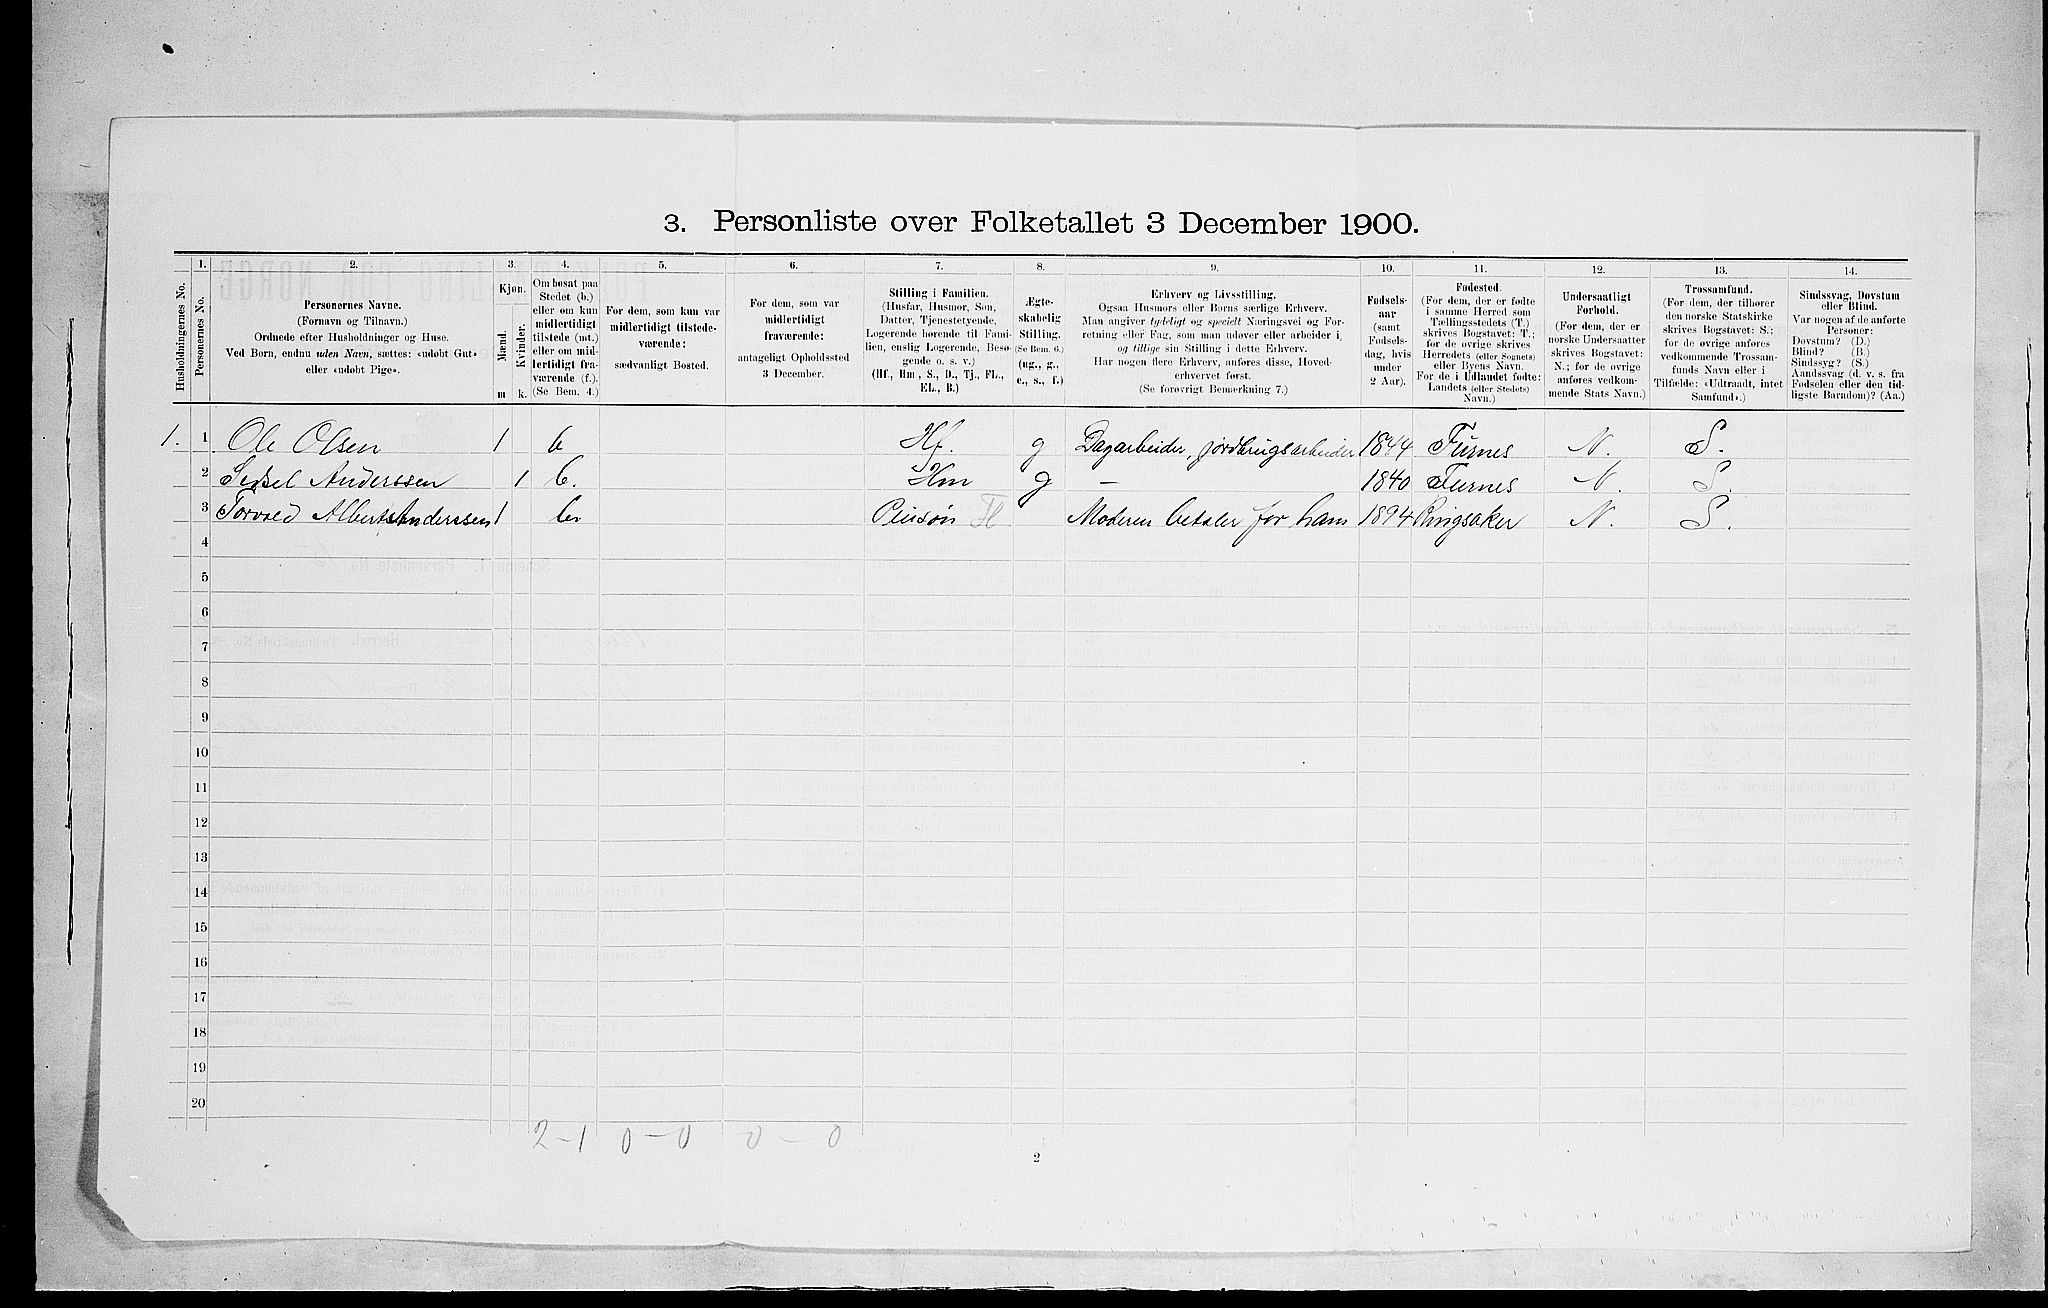 3. Personliste over Folketallet 3 December 1900.
Husholdningernes No.
1.
Personernes No.
2.
Personernes Navne.
(Fornavn og Tilnavn.)
Ordnede efter Husholdninger og Huse.
Ved Børn, endnu uden Navn, sættes: «udøbt Gut»
eller «udøbt Pige».
3.
Kjøn.
Mænd.
Kvinder.
m k.
4.
Om bosat paa
Stedet (b.)
eller om kun
midlertidigt
tilstede (mt.)
eller om mid-
lertidigt fra-
værende (f.).
(Se Bem. 4.)
5.
For dem, som kun var
midlertidigt tilstede-
værende:
sædvanligt Bosted.
6.
For dem, som var
midlertidigt
fraværende:
antageligt Opholdssted
3 December.
7.
Stilling i Familien.
(Husfar, Husmor, Søn,
Datter, Tjenestetyende,
Logerende hørende til Fami-
lien, enslig Logerende, Besø-
gende o. s. v.)
(Hf., Hm., S., D., Tj., FL.,
EL., B.)
8.
Ægte-
skabelig
Stilling.
(Se Bem. 6.)
(ug., g.,
e., s., f.)
9.
Erhverv og Livsstilling.
Ogsaa Husmors eller Børns særlige Erhverv.
Man angiver tydeligt og specielt Næringsvei og For-
retning eller Fag, som man udøver eller arbeider i,
og tillige sin Stilling i dette Erhverv.
Har nogen flere Erhverv, anføres disse, Hoved-
erhvervet først.
(Se forøvrigt Bemerkning 7.)
10.
Fødsels-
aar
(samt
Fødsels-
dag, hvis
under
2 Aar).
11.
Fødested.
(For dem, der er fødte
i samme Herred som
Tællingsstedets (T.)
skrives Bogstavet: T.;
for de øvrige skrives
Herredets (eller Sognets)
eller Byens Navn.
For de i Udlandet fødte:
Landets (eller Stedets)
Navn.)
12.
Undersaatligt
Forhold.
(For dem, der er
norske Undersaatter
skrives Bogstavet:
N.; for de øvrige
anføres vedkom-
mende Stats Navn.)
13.
Trossamfund.
(For dem, der tilhører
den norske Statskirke
skrives Bogstavet: S.;
for de øvrige anføres
vedkommende Trossam-
funds Navn eller i
Tilfælde: «Udtraadt, intet
Samfund».)
14.
Sindssvag, Døvstum
eller Blind.
Var nogen af de anførte
Personer:
Døvstum? (D.)
Blind? (B.)
Sindssyg? (S.)
Aandssvag (d. v. s. fra
Fødselen eller den tid-
ligste Barndom)? (Aa.)
1. 1 Ole Olsen 1 b Hf. g Dagarbeider, jordbrugsarbeider 1844 Furnes N. S.
2 Sidsel Anderssen 1 b. Hm g — 1840 Furnes N. S.
3 Torvald Albert Anderssen 1 b. Pleiesøn Fl Moderen betaler for ham 1894 Ringsaker N. S.
4
5
6
7
8
9
10
11
12
13
14
15
16
17
18
19
20
2-1 0-0 0-0
2